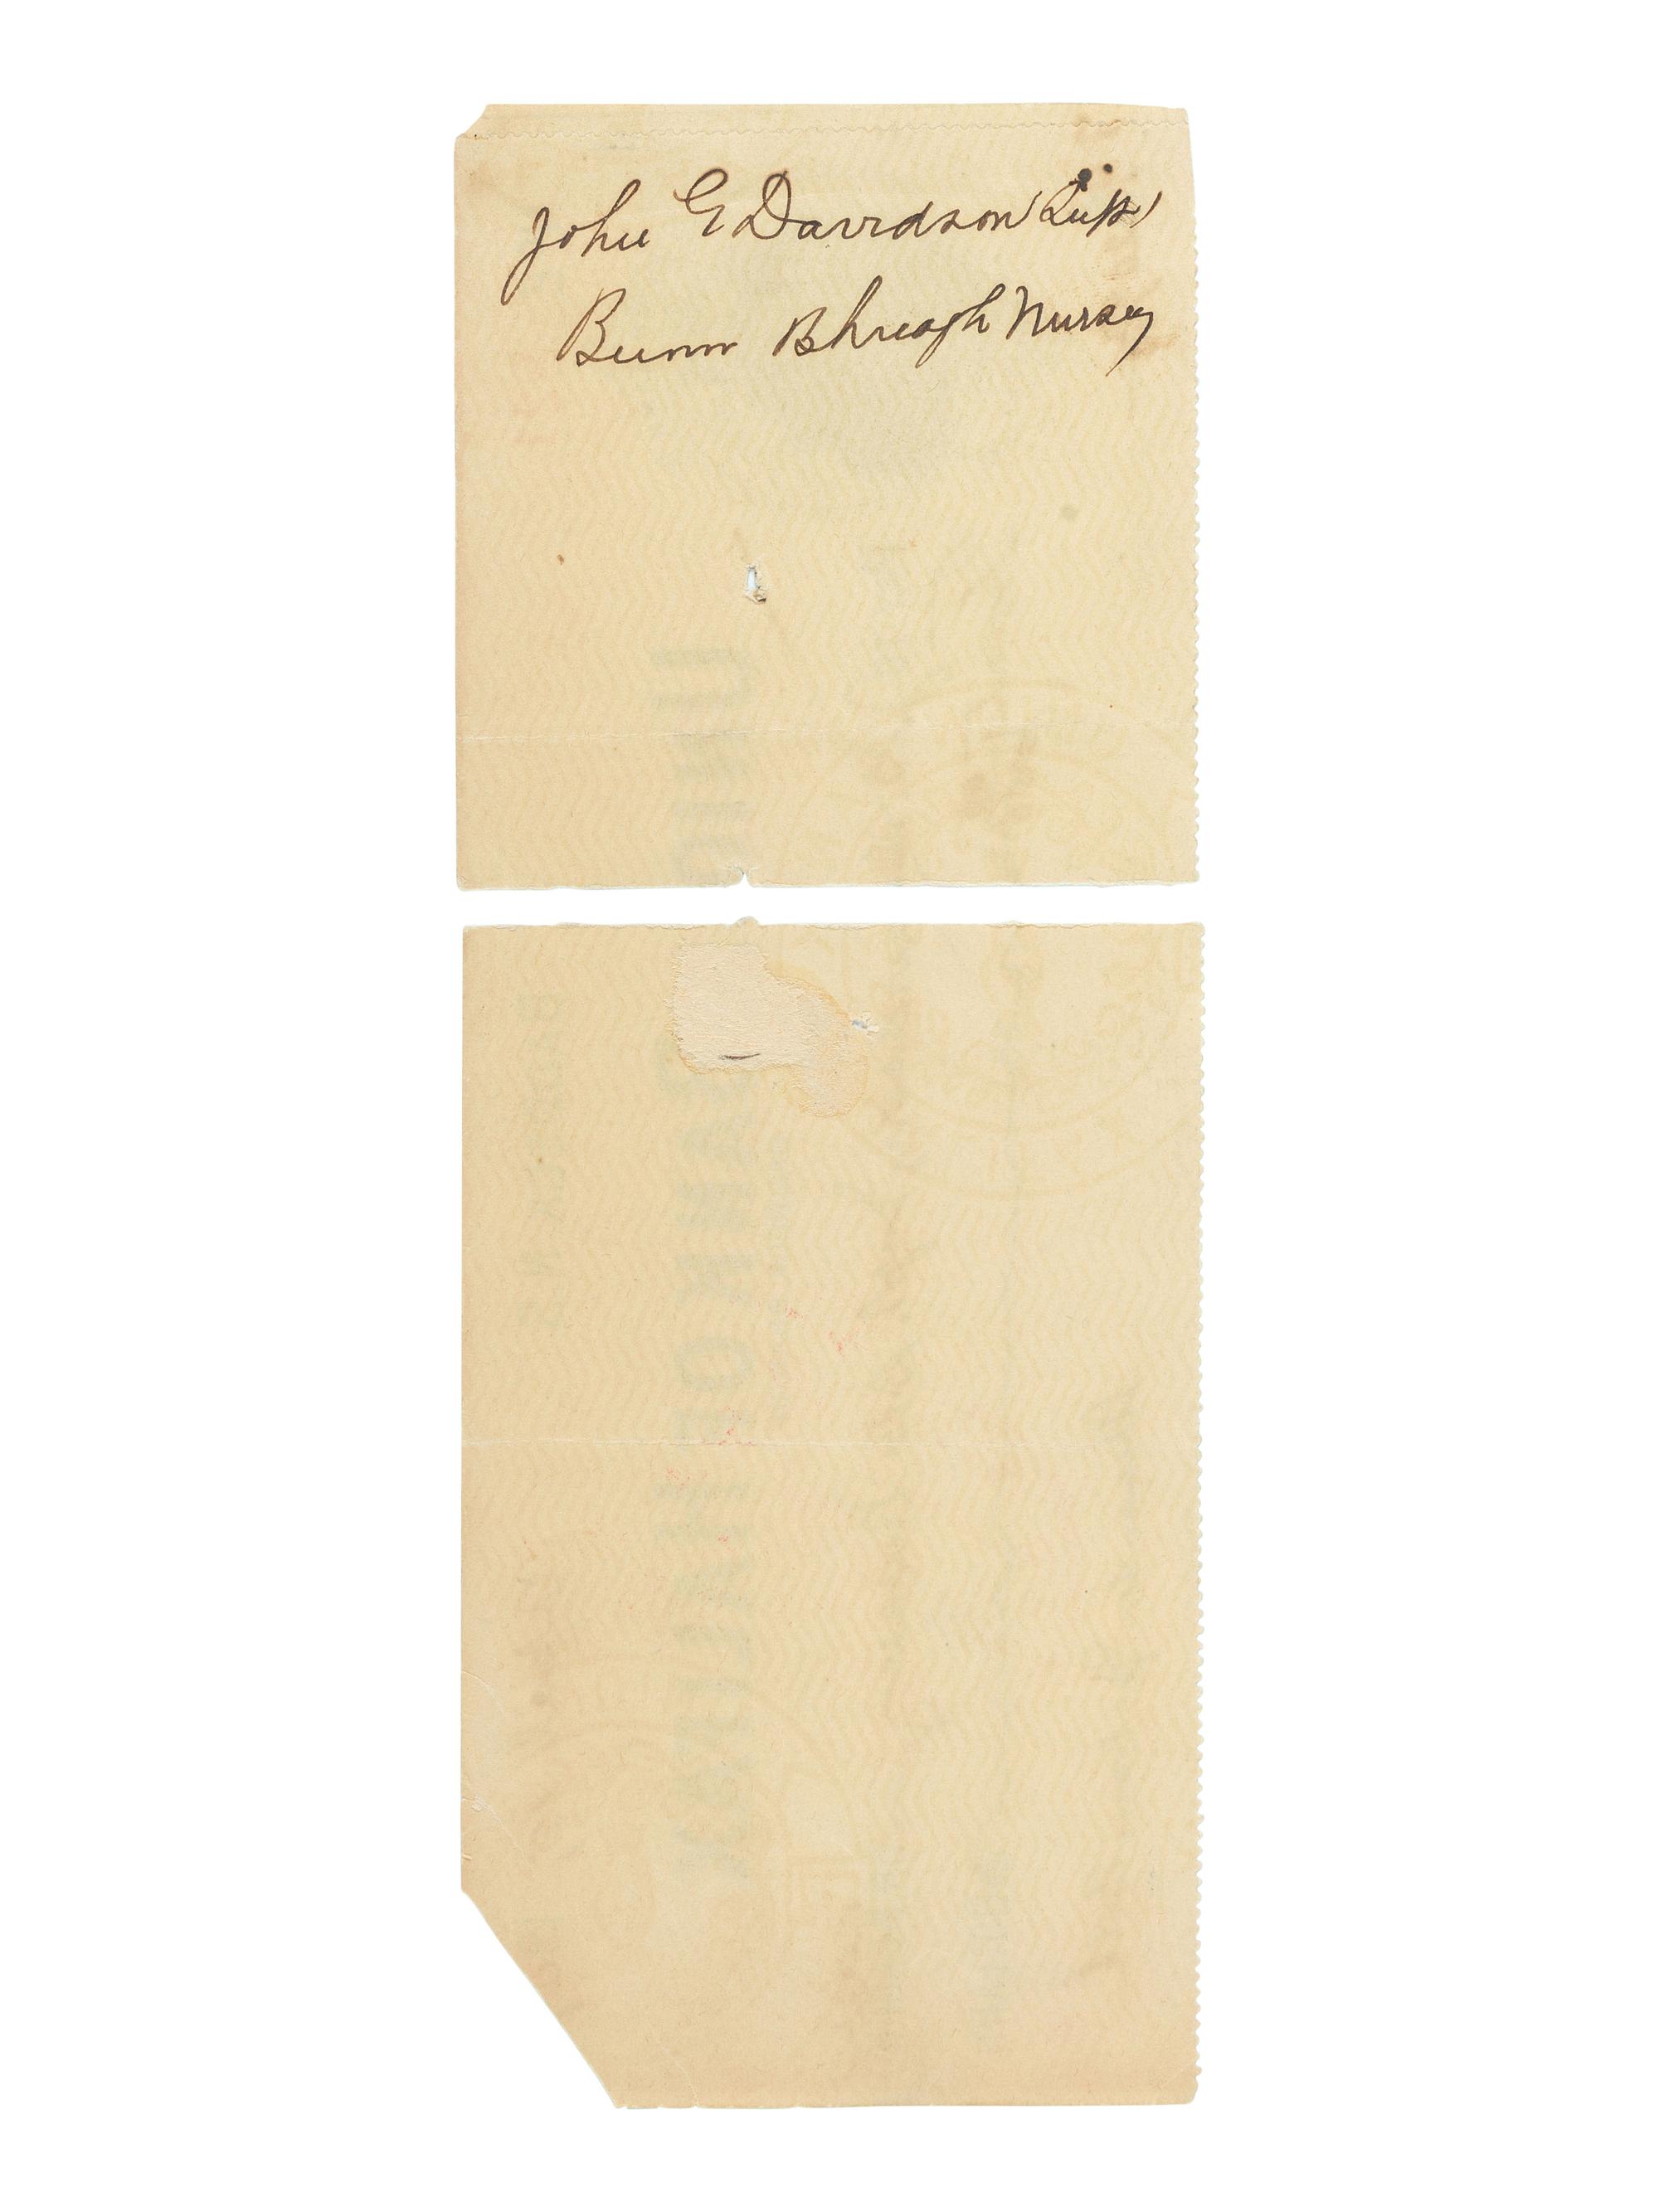 John G Davidson (Supt)
Beinn Bhreagh Nursey